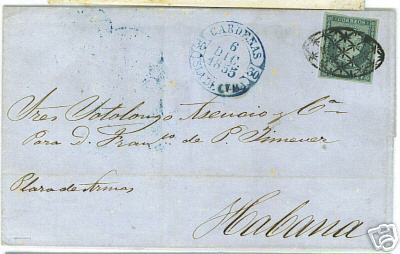 CARDENAS
6
DIC
1855
CORREOS
Sres Sotolongo Asencio y Cª
Para D. Franco. de P. Jimener
Plaza de Armas
Habana